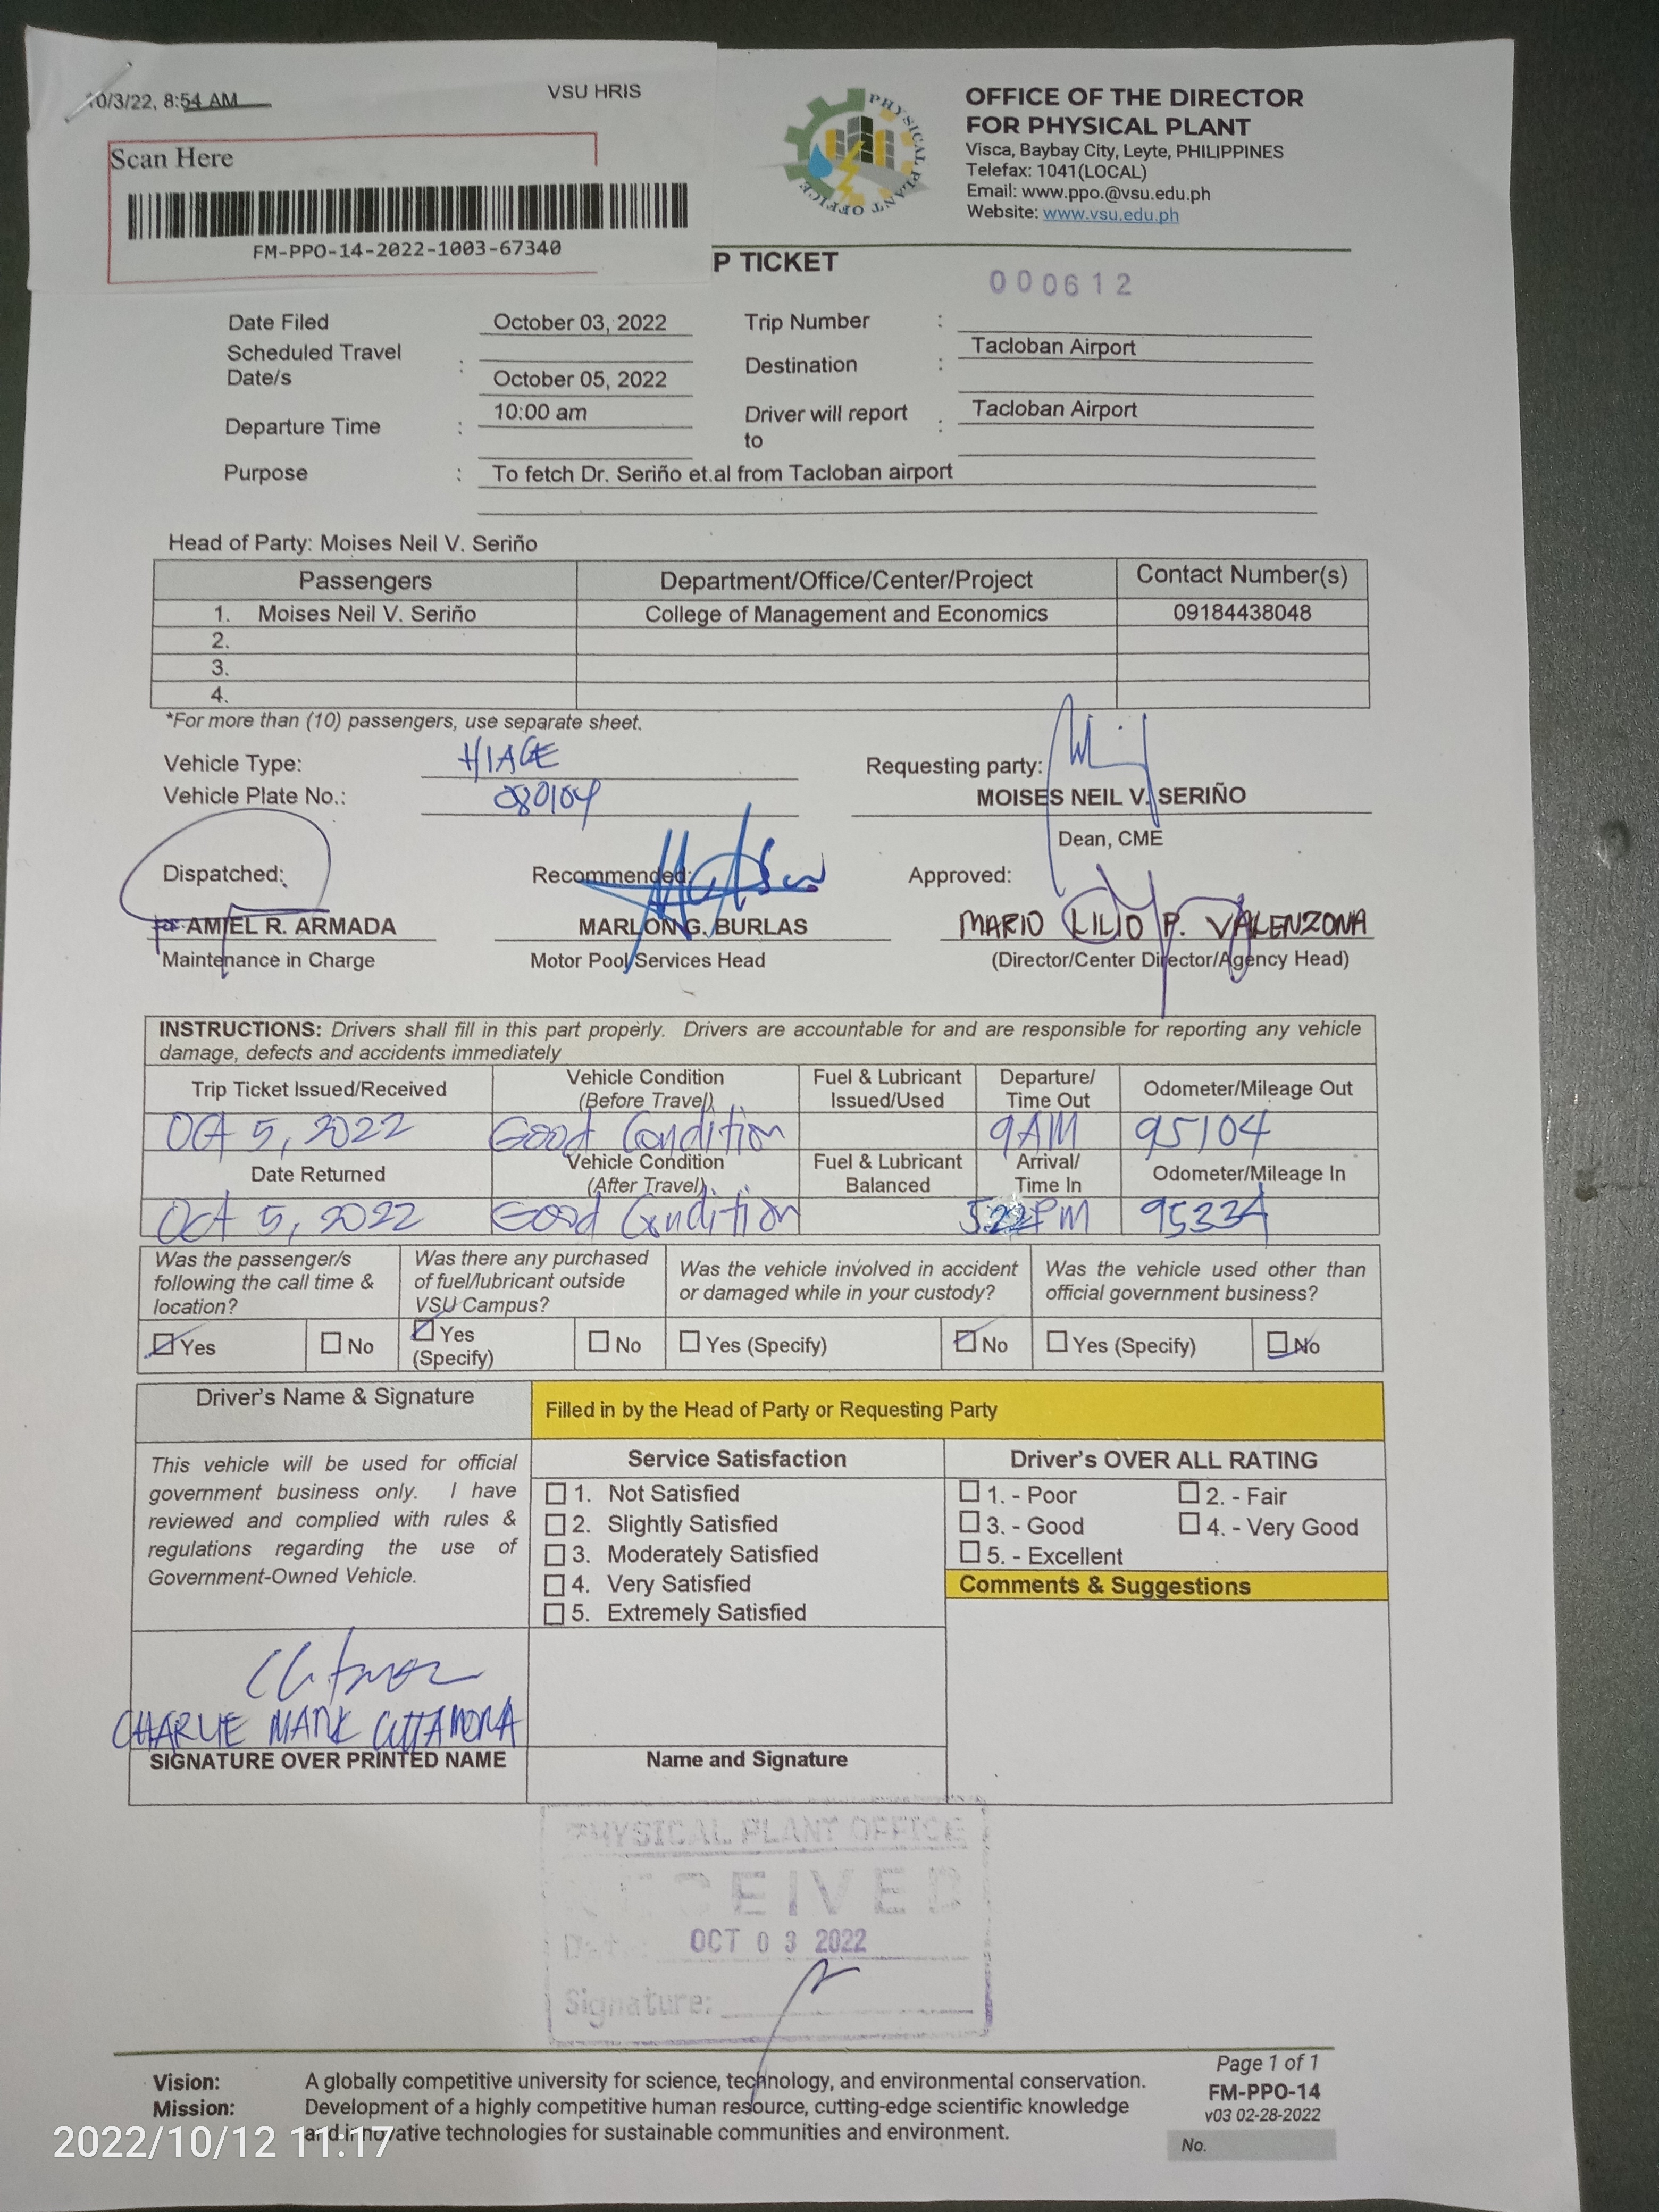 10/3/22, 8:54 AM
VSU HRIS
Scan Here
FM-PPO-14-2022-1003-67340
PHYSICAL PLANT OFFICE
OFFICE OF THE DIRECTOR
FOR PHYSICAL PLANT
Visca, Baybay City, Leyte, PHILIPPINES
Telefax: 1041(LOCAL)
Email: www.ppo.@vsu.edu.ph
Website: www.vsu.edu.ph
P TICKET
000612
Date Filed October 03, 2022 Trip Number :
Scheduled Travel Date/s : October 05, 2022 Destination : Tacloban Airport
Departure Time : 10:00 am Driver will report to : Tacloban Airport
Purpose : To fetch Dr. Seriño et.al from Tacloban airport
Head of Party: Moises Neil V. Seriño
Passengers Department/Office/Center/Project Contact Number(s)
1. Moises Neil V. Seriño College of Management and Economics 09184438048
2.
3.
4.
*For more than (10) passengers, use separate sheet.
Vehicle Type: HIACE Requesting party:
Vehicle Plate No.: 080104 MOISES NEIL V. SERIÑO
Dean, CME
Dispatched: Recommended: Approved:
for AMIEL R. ARMADA MARLON G. BURLAS MARIO LILIO P. VALENZONA
Maintenance in Charge Motor Pool Services Head (Director/Center Director/Agency Head)
INSTRUCTIONS: Drivers shall fill in this part properly. Drivers are accountable for and are responsible for reporting any vehicle
damage, defects and accidents immediately
Trip Ticket Issued/Received Vehicle Condition (Before Travel) Fuel & Lubricant Issued/Used Departure/ Time Out Odometer/Mileage Out
Oct 5, 2022 Good Condition 9AM 95104
Date Returned Vehicle Condition (After Travel) Fuel & Lubricant Balanced Arrival/ Time In Odometer/Mileage In
Oct 5, 2022 Good Condition PM 95334
Was the passenger/s following the call time & location? Was there any purchased of fuel/lubricant outside VSU Campus? Was the vehicle involved in accident or damaged while in your custody? Was the vehicle used other than official government business?
Yes No Yes (Specify) No Yes (Specify) No Yes (Specify) No
Driver's Name & Signature
Filled in by the Head of Party or Requesting Party
This vehicle will be used for official
government business only. I have
reviewed and complied with rules &
regulations regarding the use of
Government-Owned Vehicle.
Service Satisfaction
1. Not Satisfied
2. Slightly Satisfied
3. Moderately Satisfied
4. Very Satisfied
5. Extremely Satisfied
Driver's OVER ALL RATING
1. - Poor 2. - Fair
3. - Good 4. - Very Good
5. - Excellent
Comments & Suggestions
CHARLIE MARK
SIGNATURE OVER PRINTED NAME
Name and Signature
PHYSICAL PLANT OFFICE
RECEIVED
Date: OCT 03 2022
Signature:
Vision: A globally competitive university for science, technology, and environmental conservation.
Mission: Development of a highly competitive human resource, cutting-edge scientific knowledge
and innovative technologies for sustainable communities and environment.
Page 1 of 1
FM-PPO-14
v03 02-28-2022
No.
2022/10/12 11:17